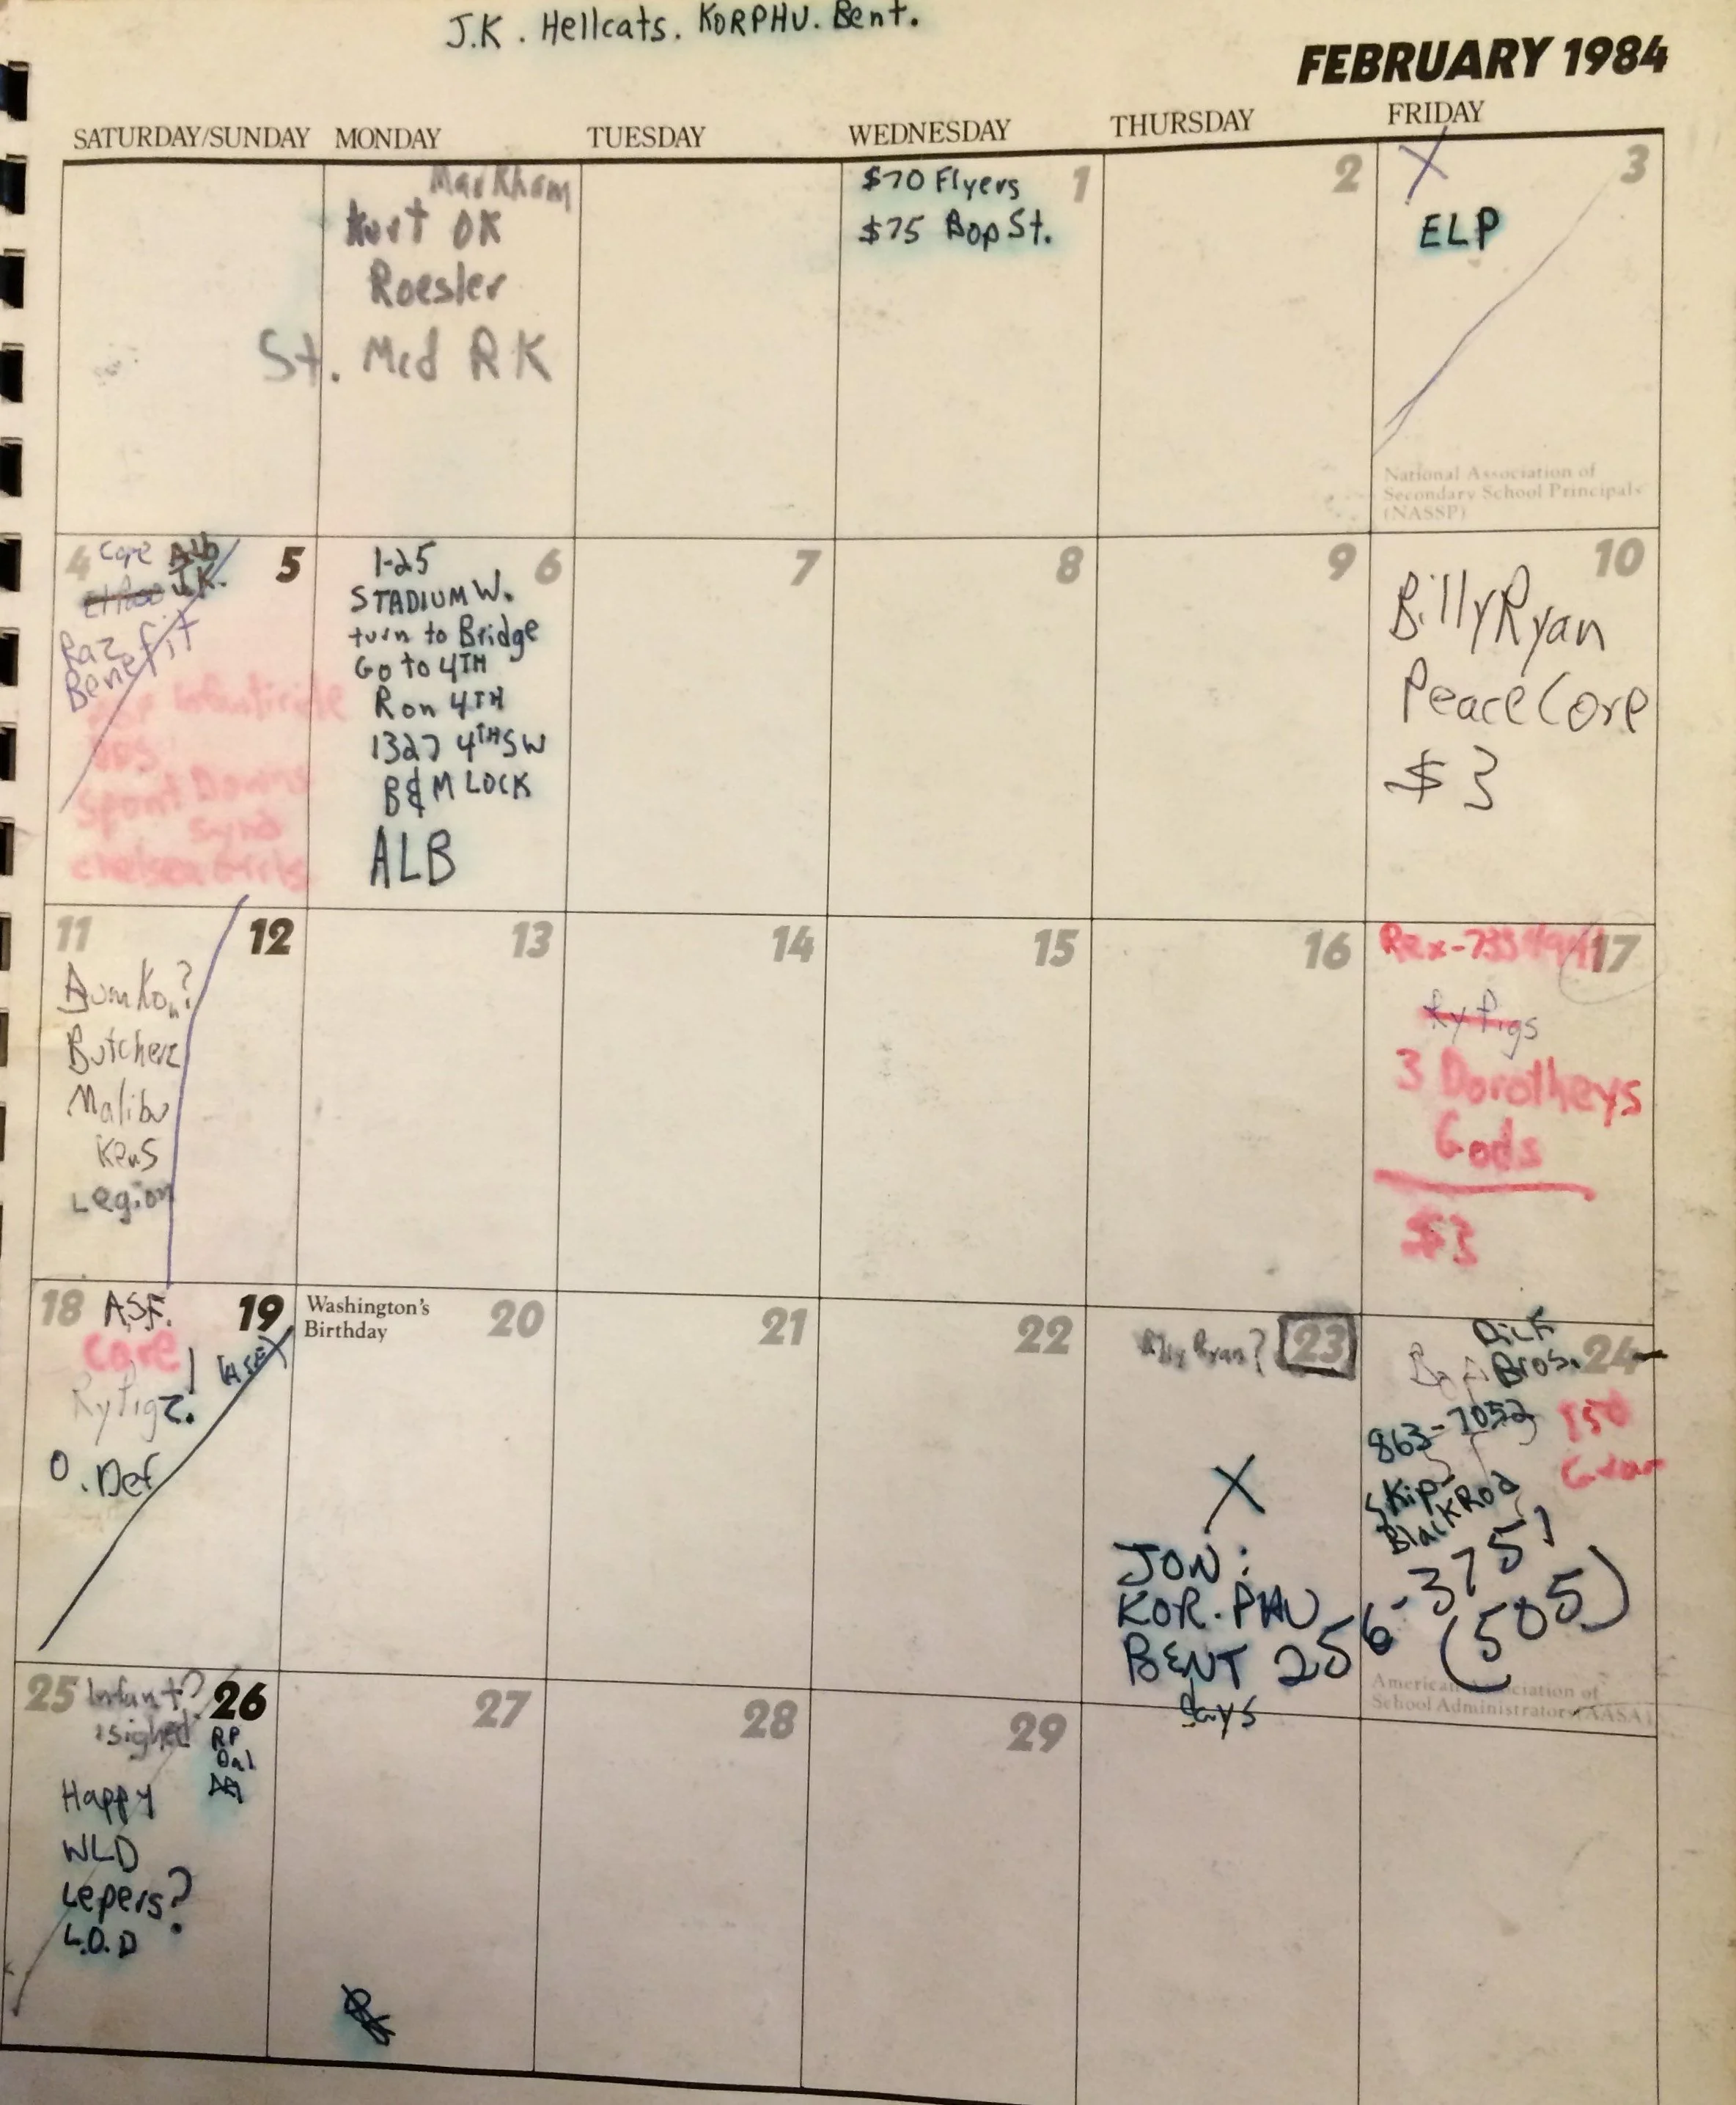 J.K. Hellcats. KORPHU. Bent.
FEBRUARY 1984
SATURDAY/SUNDAY MONDAY TUESDAY WEDNESDAY THURSDAY FRIDAY
Markham
Kurt OK
Roesler
St. Med RK
1
$70 Flyers
$75 Bop St.
2
3
X
ELP
National Association of
Secondary School Principals
(NASSP)
4
Core Alb
J.K.
Raz
Benefit
Infanticide
Chelsea Girls
5
6
1-25
STADIUM W.
turn to Bridge
Go to 4TH
R on 4TH
1327 4TH SW
B&M LOCK
ALB
7
8
9
10
Billy Ryan
Peace Core
$3
11
BumKon?
Butcherz
Malibu
Kens
Legion
12
13
14
15
16
17
Rex-733
RyPigs
3 Dorotheys
Gods
$3
18
A.S.F.
Core
RyPigz!
O. Def
19
Washington's
Birthday
20
21
22
23
Billy Ryan?
X
JON:
KOR.PHU
BENT 256-3751
(505)
days
24
Bros.
863-7052
Skip
BlackRod
American Association of
School Administrators (AASA)
25
Infant?
signed
Happy
WLD
Lepers?
L.O.D
26
RP
Dal
27
28
29